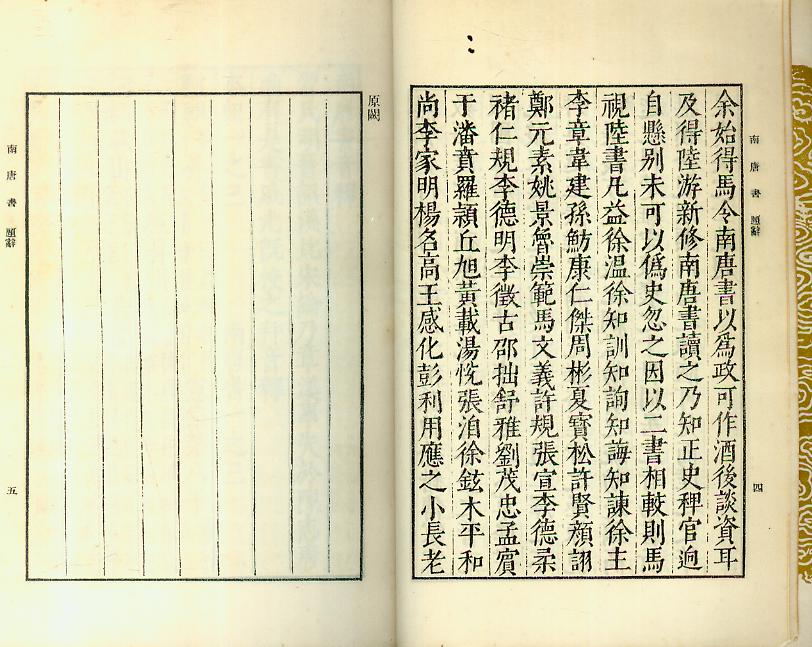 南唐書 題辭
四
余始得馬令南唐書以爲政可作酒後談資耳
及得陸游新修南唐書讀之乃知正史稗官迥
自懸别未可以僞史忽之因以二書相較則馬
視陸書凡益徐溫徐知訓知詢知誨知諫徐主
李章韋建孫魴康仁傑周彬夏寶松許賢顔詡
鄭元素姚景魯崇範馬文義許規張宣李德柔
褚仁規李德明李徵古邵拙舒雅劉茂忠孟賓
于潘賁羅潁丘旭黃載湯悅張洎徐鉉木平和
尚李家明楊名高王感化彭利用應之小長老
原闕
南唐書 題辭
五